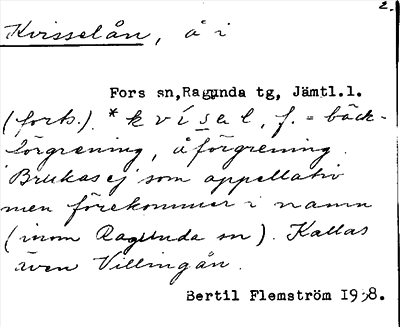 2.
Kvisselån, å i
Fors sn, Ragunda tg, Jämtl.l.
(forts.). *kvísal, f. = bäck-
förgrening, åförgrening.
Brukas ej som appellativ
men förekommer i namn
(inom Ragunda sn). Kallas
även Villingån.
Bertil Flemström